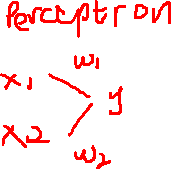 Perceptron
w1
x1
y
x2
w2